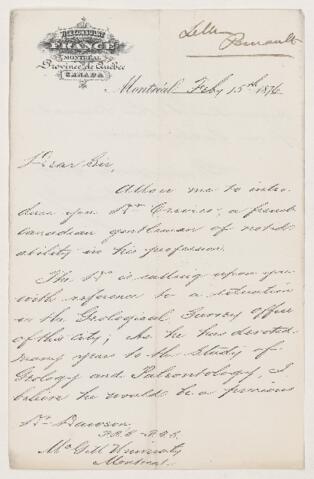 FRANCE
MONTRÉAL
Province de Québec
CANADA
Montréal Feby 15th 1876
Dear Sir,
Allow me to intro-
duce you Dr Crevier, a french
Canadian gentleman of not-
ability in his profession.
The Dr is calling upon you
with reference to a situation
in the Geological Survey Office
of this City; As he has devoted
many years to the study of
Geology and Paleontology, I
believe he would be a precious
Dr Dawson
McGill University
Montreal